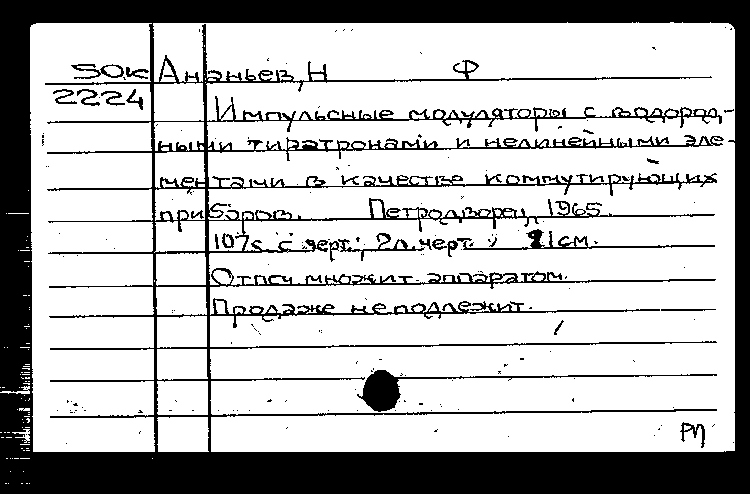 50к Ананьев, Н Ф
2224
Импульсные модуляторы с водород,-
ными тиратронами и нелинейными эле-
ментами в качестве коммутирующих
приборов. Петродворец, 1965.
107с. с черт.; 2л. черт. 21см.
Отпеч множит. аппаратом.
Продаже не подлежит.
РП